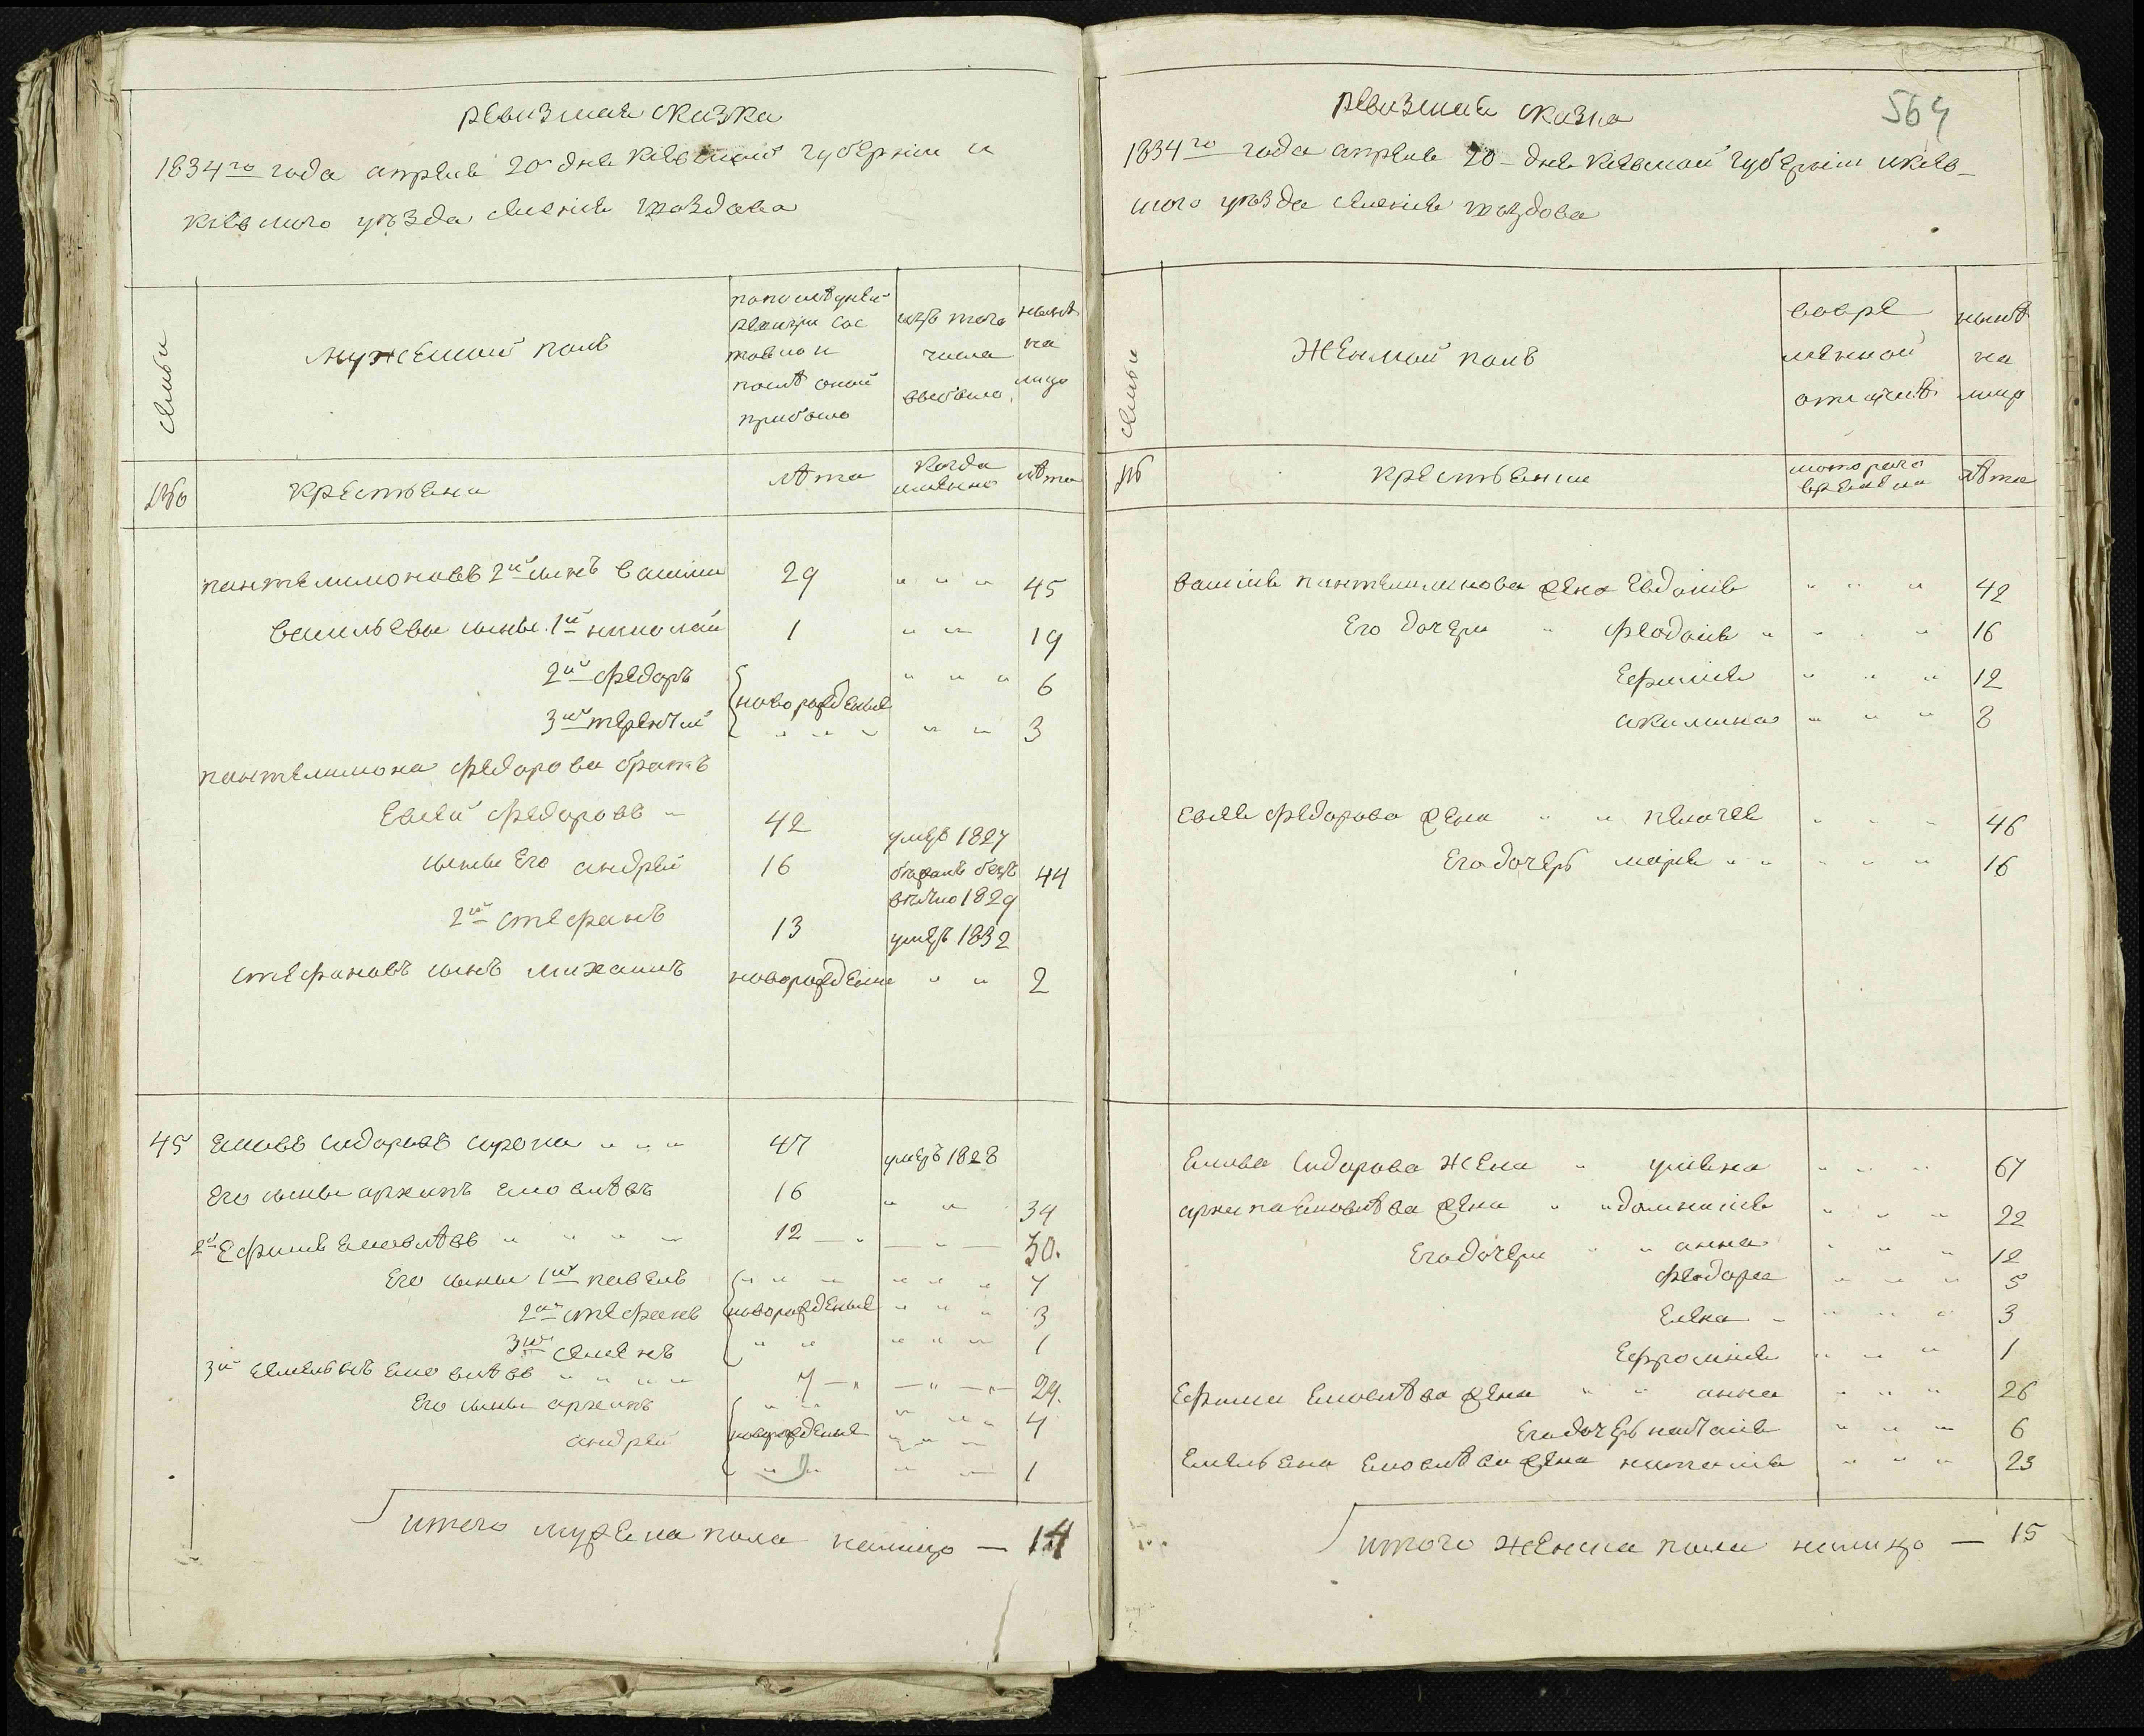 ревизская сказка
1834го года апреля 20 дня Киевской губернии и
Киевского уѣзда селения гвоздова
семьи
мужеский полъ
по последней
ревизіи сос
тояло и
послѣ оной
прибыло
изъ того
числа
выбыло
нынѣ
на
лицо
№
крестьяне
лѣта
когда
именно
лѣта
пантелимоновъ 2й сынъ василий 29 45
васильевы сыны 1й николай 1 19
2й федоръ 6
новорожденые
3й терентий 3
пантелимона федорова братъ
Евсей федоровъ 42 умеръ 1827
сыны его андрей 16 44
1829
2й стефанъ 13 умеръ 1832
стефановъ сынъ михаилъ новорожденны 2
45 сидоровъ сорока 47 умеръ 1828
его сыны архипъ 16 34
2й Ефимъ 12 30.
Его сыны 1й павелъ 7
2й стефанъ новорожденые 3
3й семенъ 1
3й емельянъ 7 24.
Его сыны архипъ 4
андрей новорожденые 1
итого мужеска пола налицо — 14
564
ревизская сказка
1834го года апреля 20 дня Киевской губернии и Киев-
ского уѣзда селения гвоздова
семьи
Женской полъ
вовре
менной
отлучкѣ
нынѣ
на
лицо
№
крестьянки
с которого
времени
лѣта
василия пантелимонова жена Евдокия 42
Его дочери феодосия 16
Ефимия 12
акилина 8
Евсея федорова жена пелагея 46
Его дочеръ мария 16
сидорова Жена улияна 67
архипа жена домникия 22
Его дочери анна 12
феодора 5
Елена 3
Ефросиния 1
Ефима жена анна 26
Его дочеръ 6
Емельяна жена наталия 23
итого женска пола налицо — 15